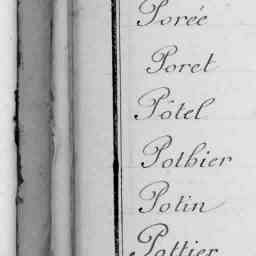 Porée
Poret
Pôtel
Pothier
Potin
Pottier